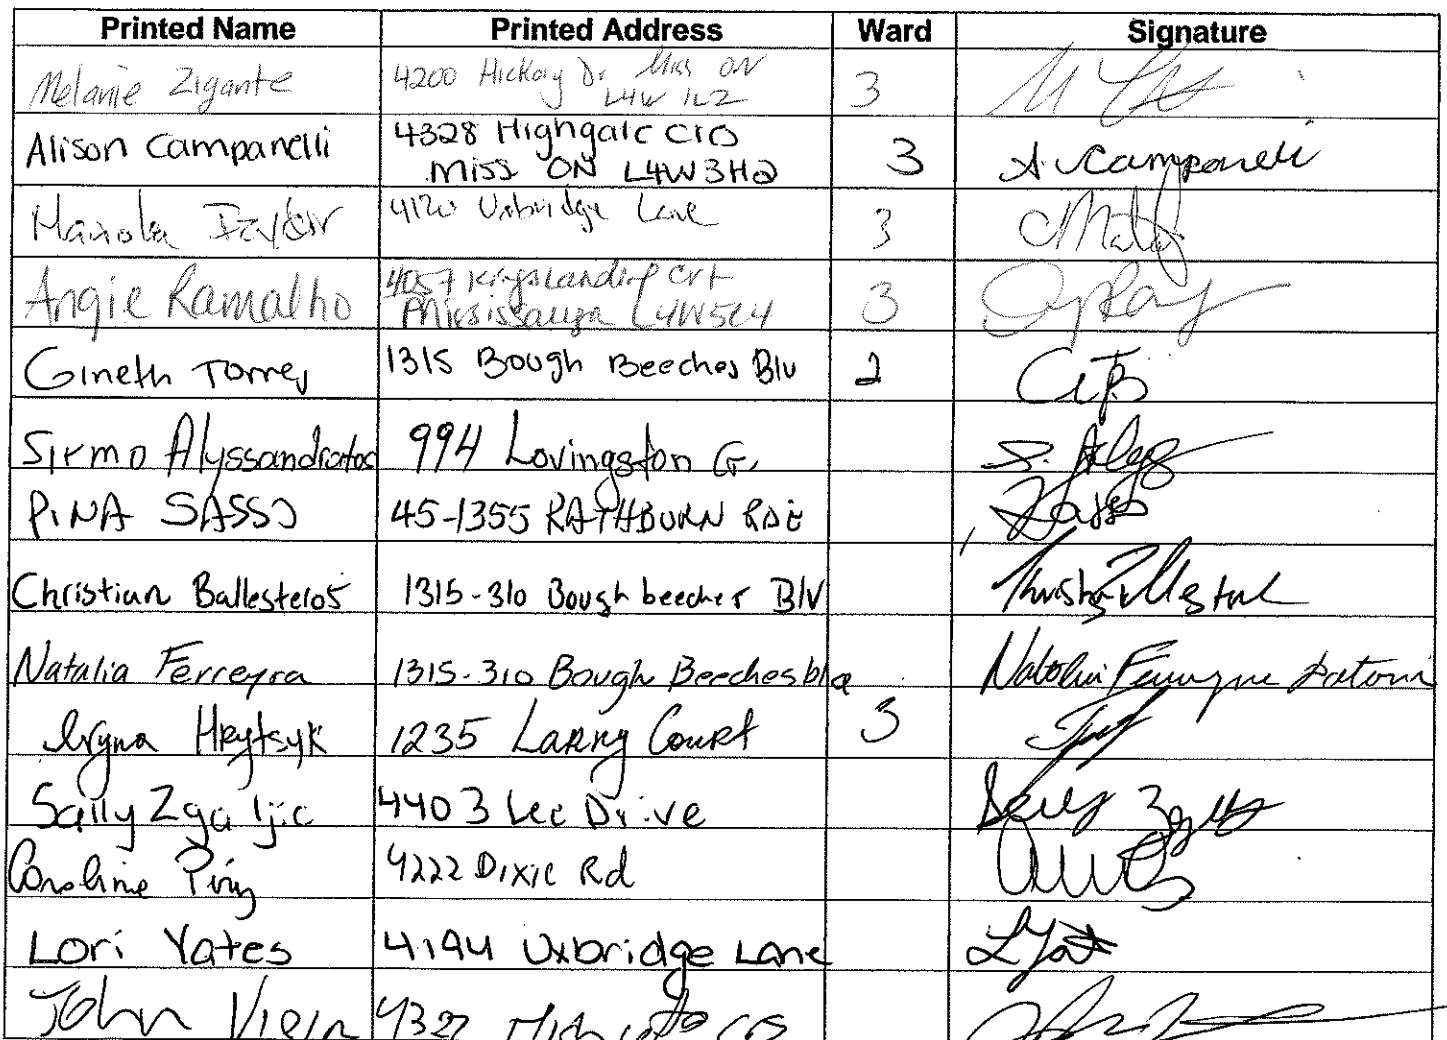 Printed Name Printed Address Ward Signature
Melanie Zigante 4200 Hickory Dr Miss ON 3
L4W 1L2
Alison Campanelli 4328 Highgate Cres 3 A. Campanelli
Miss ON L4W3H2
Taylor 4120 Uxbridge Lane 3
Angie Ramalho 4057 Kingslanding Crt 3
Mississauga L4W5C4
Gineth Torres 1315 Bough Beeches Blv 2
Sirmo Alyssandratos 994 Lovingston Cr.
PINA SASSO 45-1355 RATHBURN RD E Sasso
Christian Ballesteros 1315-310 Bough beeches Blv
Natalia Ferreyra 1315-310 Bough Beeches blv Natalia Ferreyra
Iryna Hrytsyk 1235 Larny Court 3
Sally Zgaljic 4403 Lee Drive Sally
Caroline 4222 Dixie Rd
Lori Yates 4194 Uxbridge Lane L Yates
John 4327